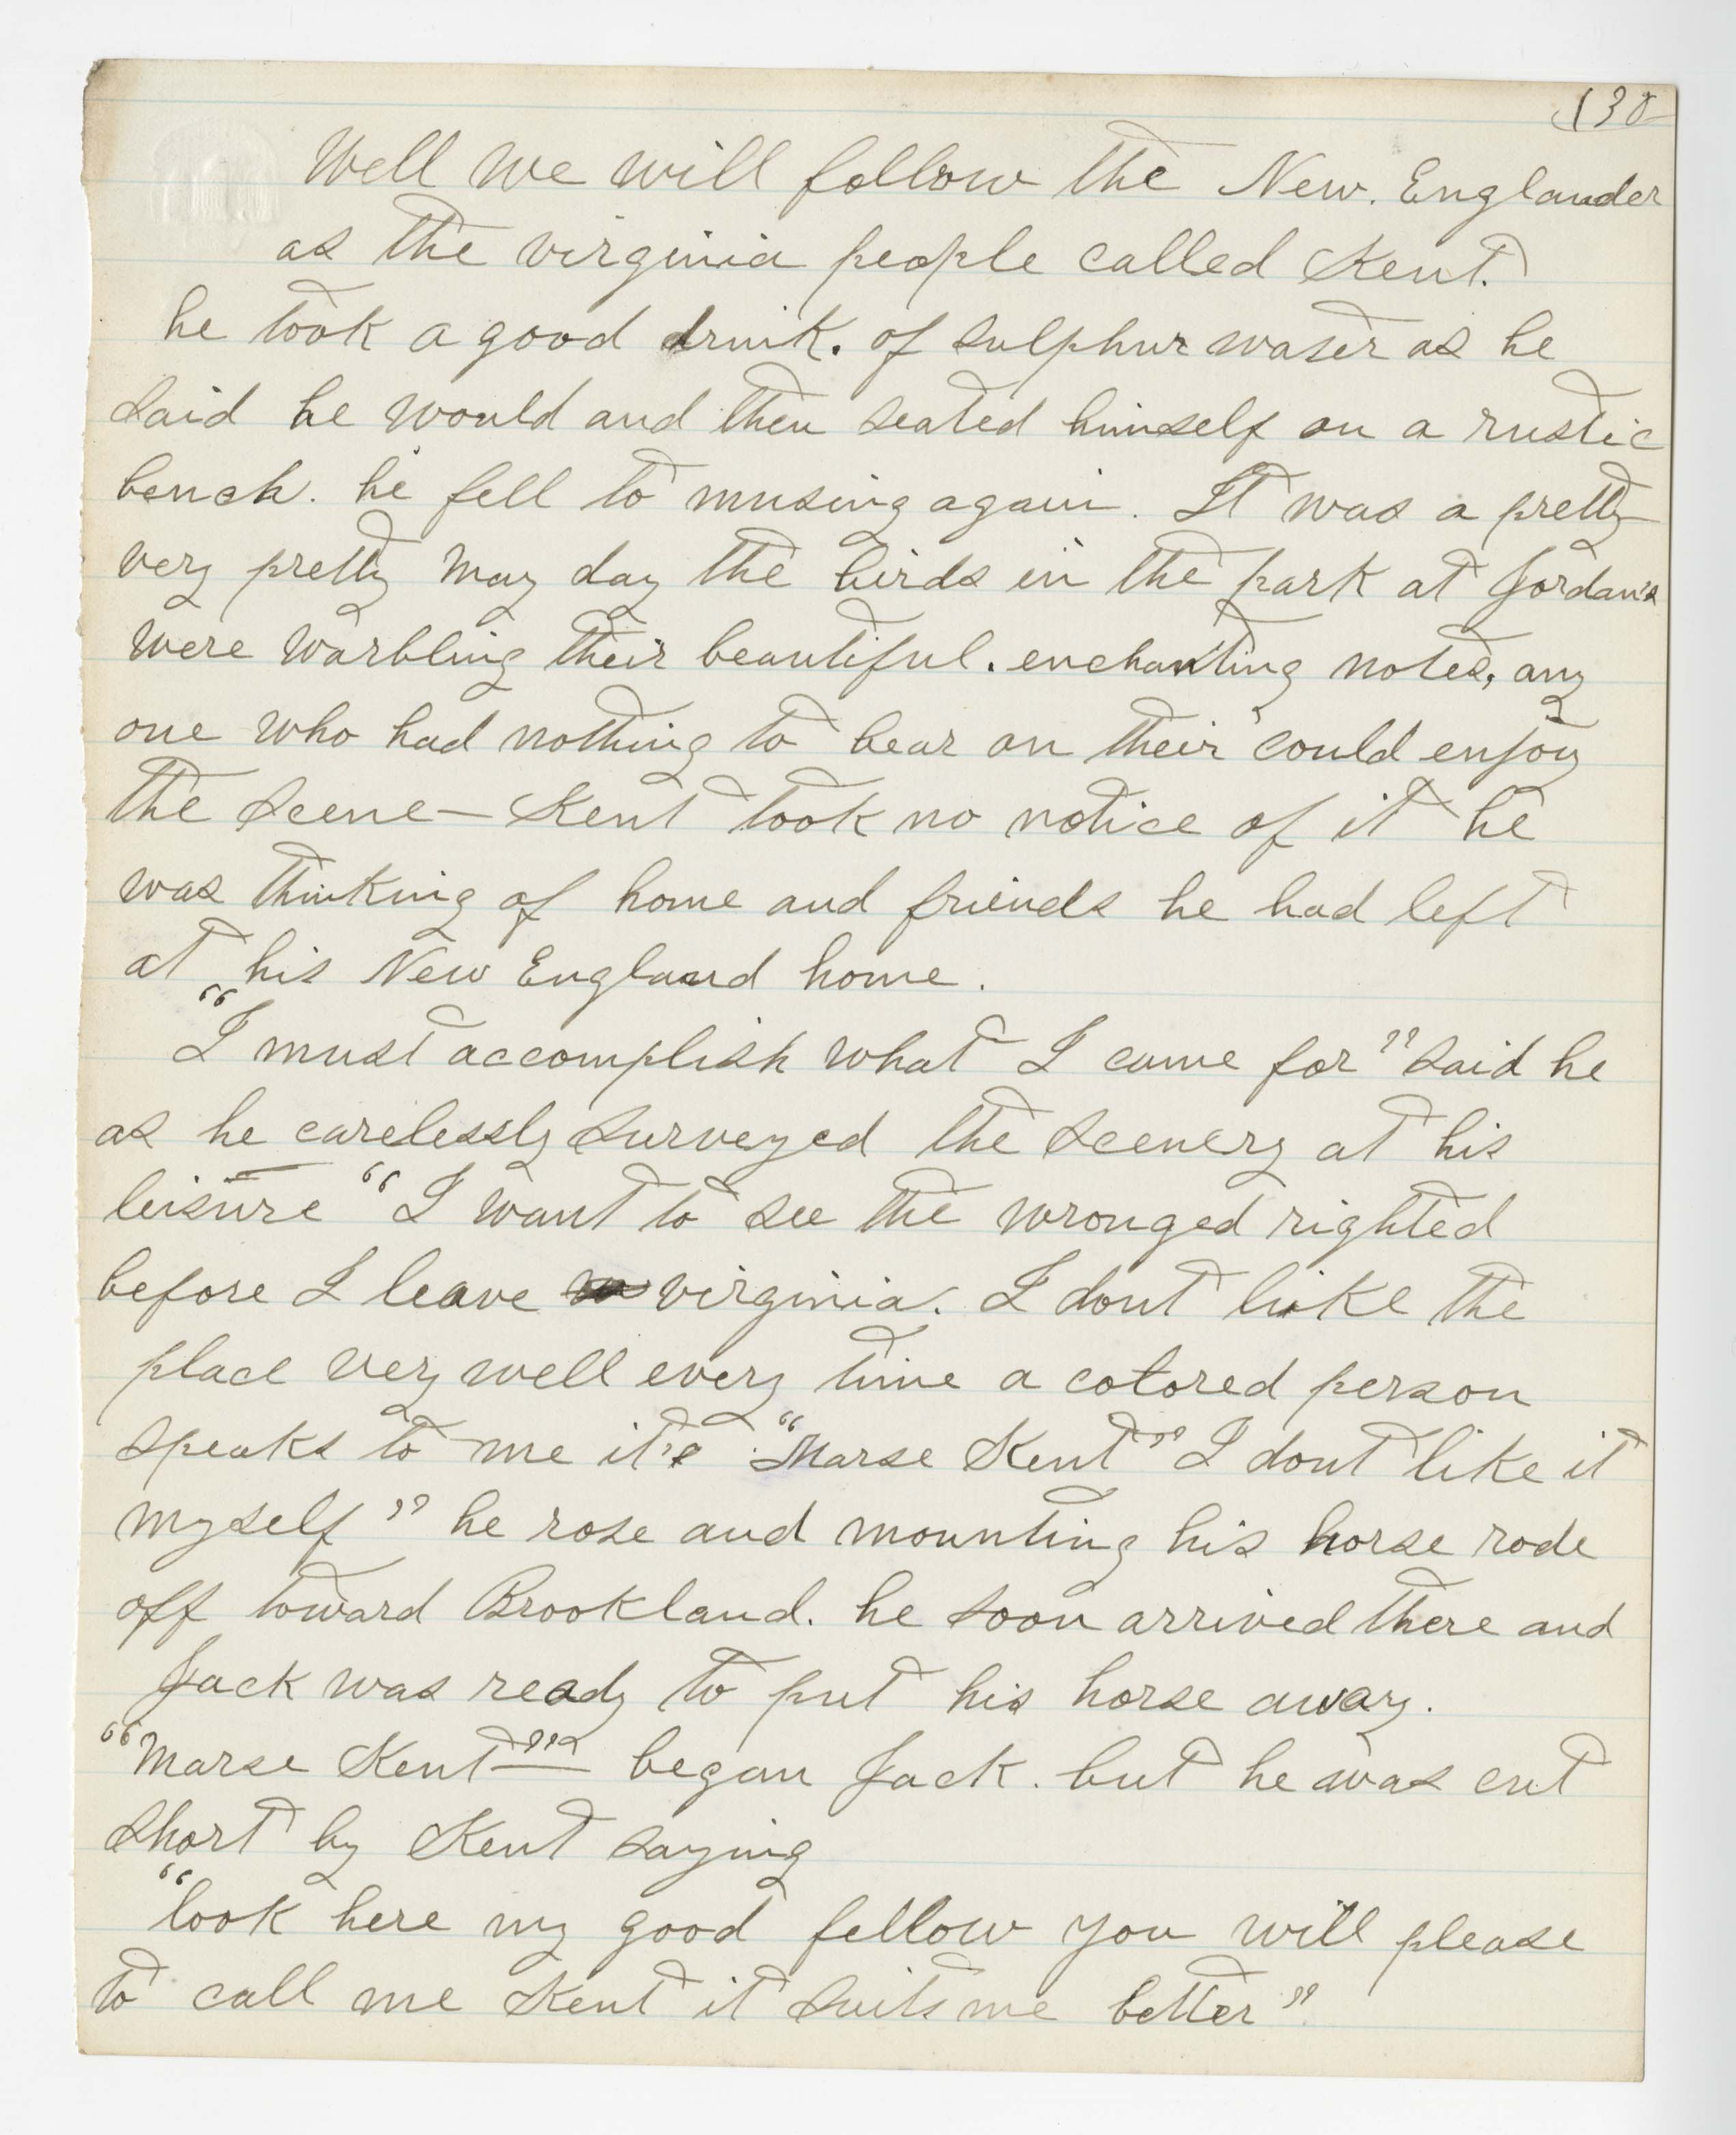 130
Well we will follow the New. Englander
as the virginia people called Kent.
he took a good drink. of sulphur water as he
said he would and then seated himself on a rustic
bench. he fell to musing again. It was a pretty
very pretty May day the birds in the park at Jordan's
were warbling their beautiful. enchanting notes, any
one who had nothing to bear on their could enjoy
the scene — Kent took no notice of it he
was thinking of home and friends he had left
at his New England home.
"I must accomplish what I came for" said he
as he carelessly surveyed the scenery at his
leisure "I want to see the wronged righted
before I leave virginia. I dont like the
place very well every time a colored person
speaks to me it's "Marse Kent" I dont like it
myself" he rose and mounting his horse rode
off toward Brookland. he soon arrived there and
Jack was ready to put his horse away.
"Marse Kent"— began Jack. but he was cut
short by Kent saying
"look here my good fellow you will please
to call me Kent it suits me better"